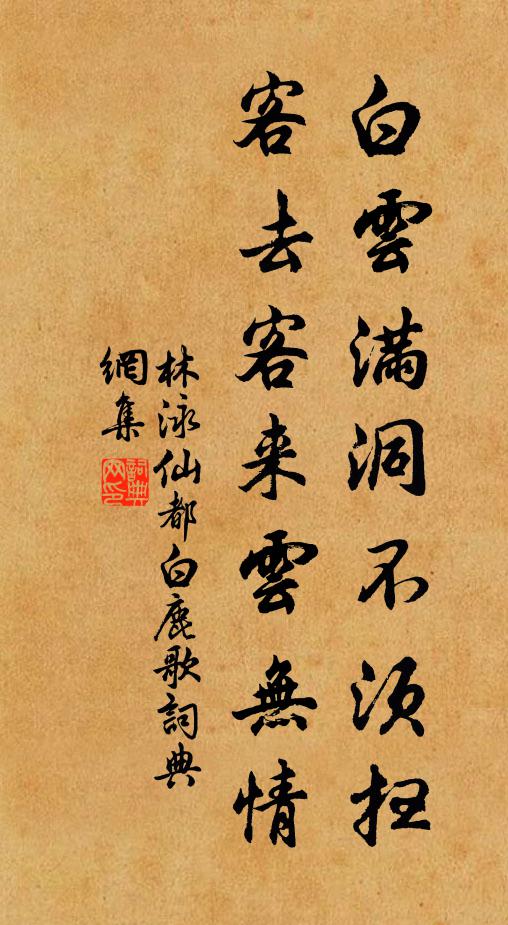 白雲満洞不湏
客去客来雲無情
林泳仙都白鹿歌詞典
網集
詞典网印